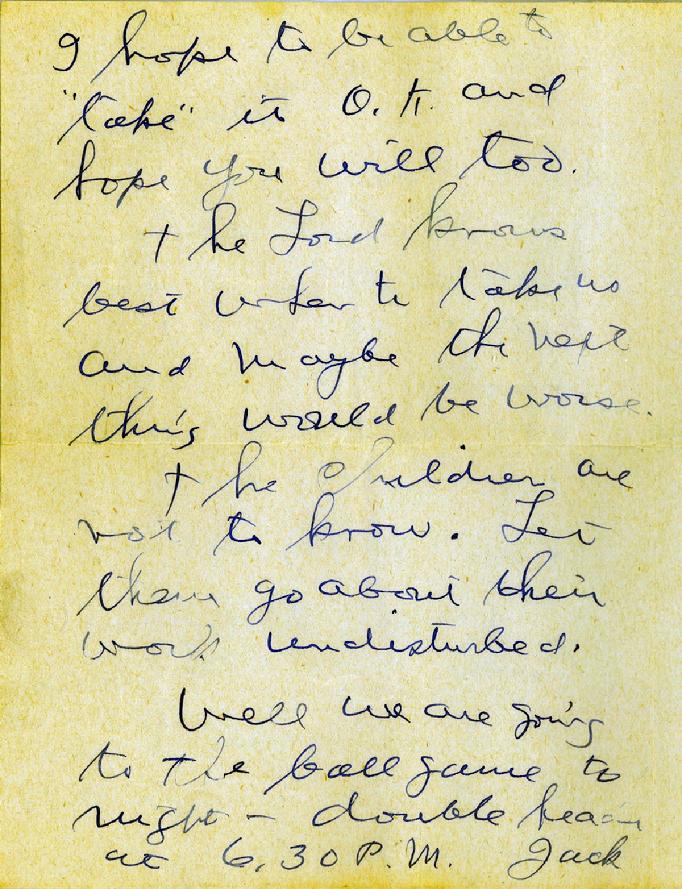 I hope to be able to
"take" it O.K. and
hope you will too.
The Lord knows
best when to take us
and maybe the next
thing would be worse.
The Children are
not to know. Let
them go about their
work undisturbed.
Well we are going
to the ball game to
night – double header
at 6.30 P.M. Jack